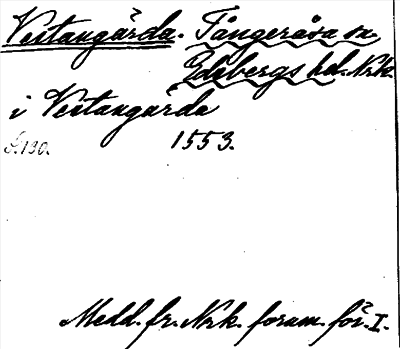 Vestangårda. Tångeråsa sn.
Edsbergs hd. Nrk.
i Vestangårda
S. 130. 1553.
Medd. fr. Nrk. fornm. för. I.